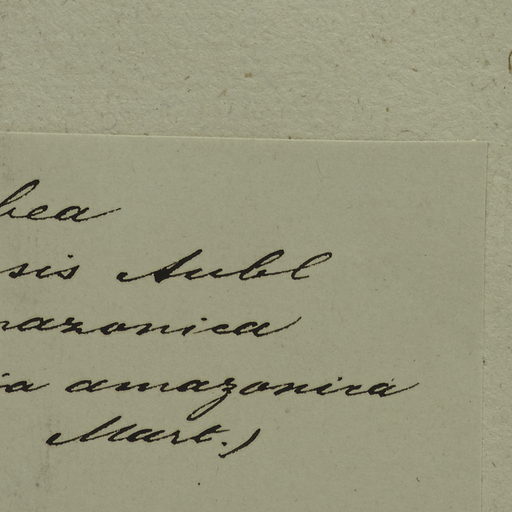 bea
sis Aubl
mazonica
ia amazonica
Mart.)